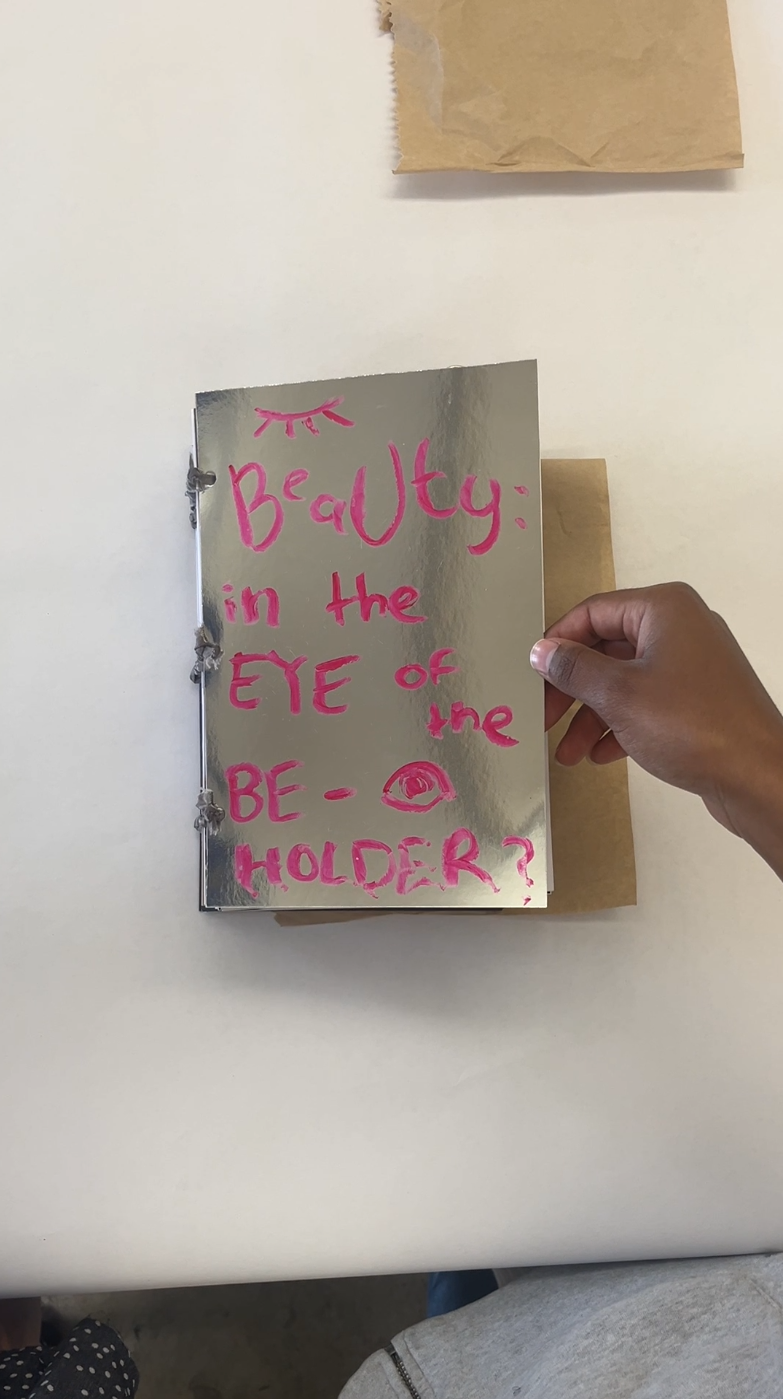 BeaUty:
in the
EYE of
the
BE-
HOLDER?